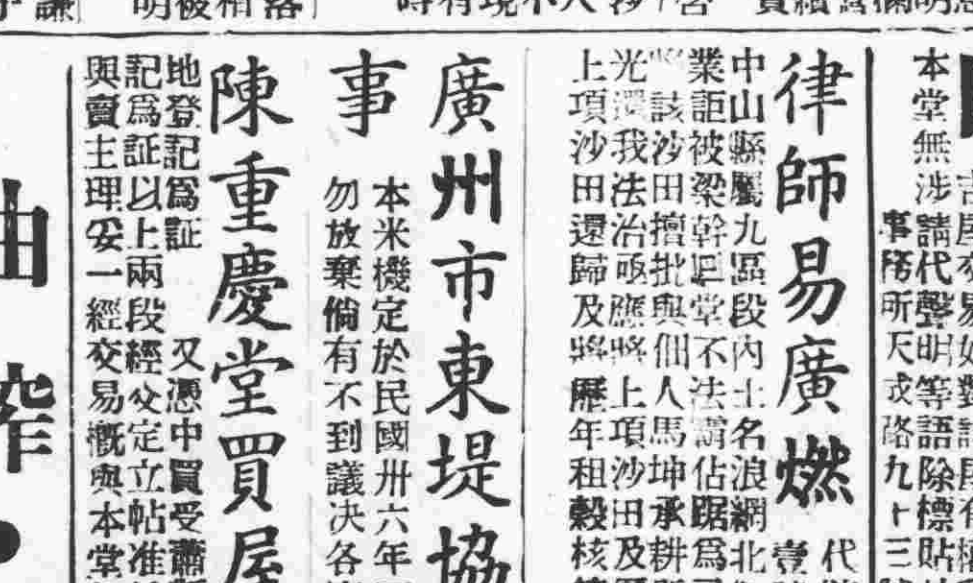 本堂無涉請代聲明等語除標貼
事務所天成路九十三
律師易廣燃
代
壹
中山縣屬九區段內土名浪網北
業詎被梁幹廷堂不法霸佔踞爲
該沙田擅批與佃人馬坤承耕
光還我法治亟應將上項沙田及
上項沙田還歸及將歷年租穀核
廣州市東堤協
事
本米機定於民國卅六年
勿放棄倘有不到議决各
陳重慶堂買屋
地登記爲証 又憑中買受蕭
記爲証以上兩段經仝定立帖准
與賣主理妥一經交易槪與本堂
油
榨